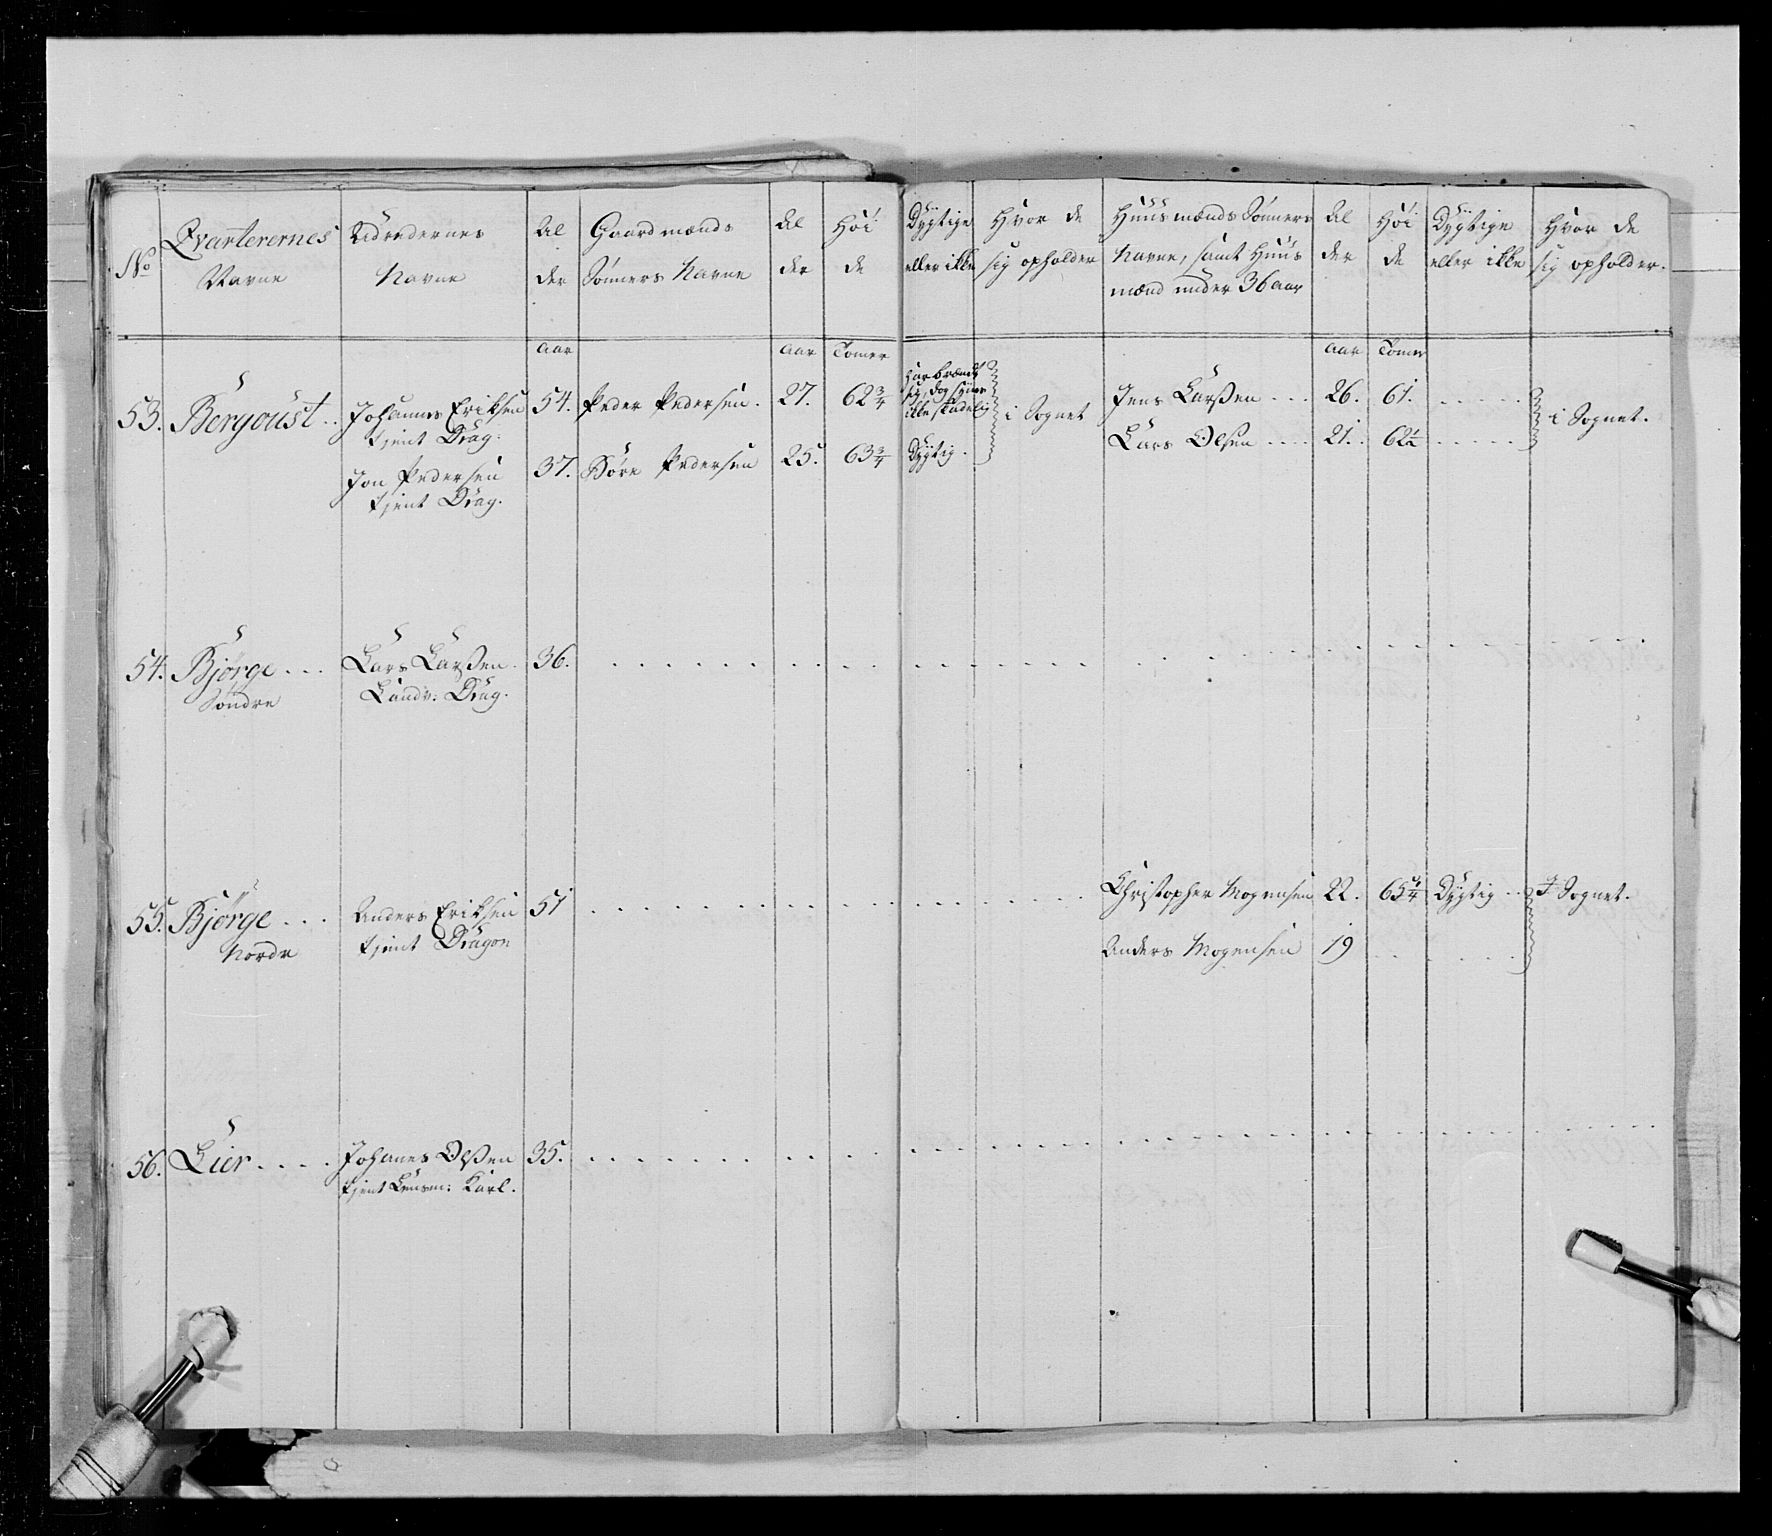 No
Qvarterernes
Navne
Udredernes
Navne
Al
der
Gaardmænds
Sønners Navne
Al
der
Høi
de
Dygtige
eller ikke
Hvor de
sig opholder
Huusmænds Sønners
Navne, samt Huus
mænd under 36 aar
Al
der
Høi
de
Dygtige
eller ikke
Hvor de
sig opholder.
aar
aar
Tomer
aar
Tomer
53. Bergoust..
Johannes Eriksen
tjent Drag.
54.
Peder Pedersen.
27.
62 3/4
Har brændt
sig, dog synes
ikke skadelig
i Sognet
Jens Larßen ...
26.
61.
.....
i Sognet.
Jon Pedersen
tjent Drag.
37.
Tøre Pedersen
25.
63 3/4
Dygtig.
Lars Olsen ....
21.
62 1/2
.....
54. Bjørge...
Søndre
Lars Larßen.
Landv: Drag.
36.
55. Bjørge...
Nordre
Anders Eriksen
tjent Dragon
51
Christopher Mogensen
22.
65 1/4
Dygtig ..
I Sognet.
Anders Mogensen
19
56. Lier....
Johanes Olßen
tjent Karl.
35.